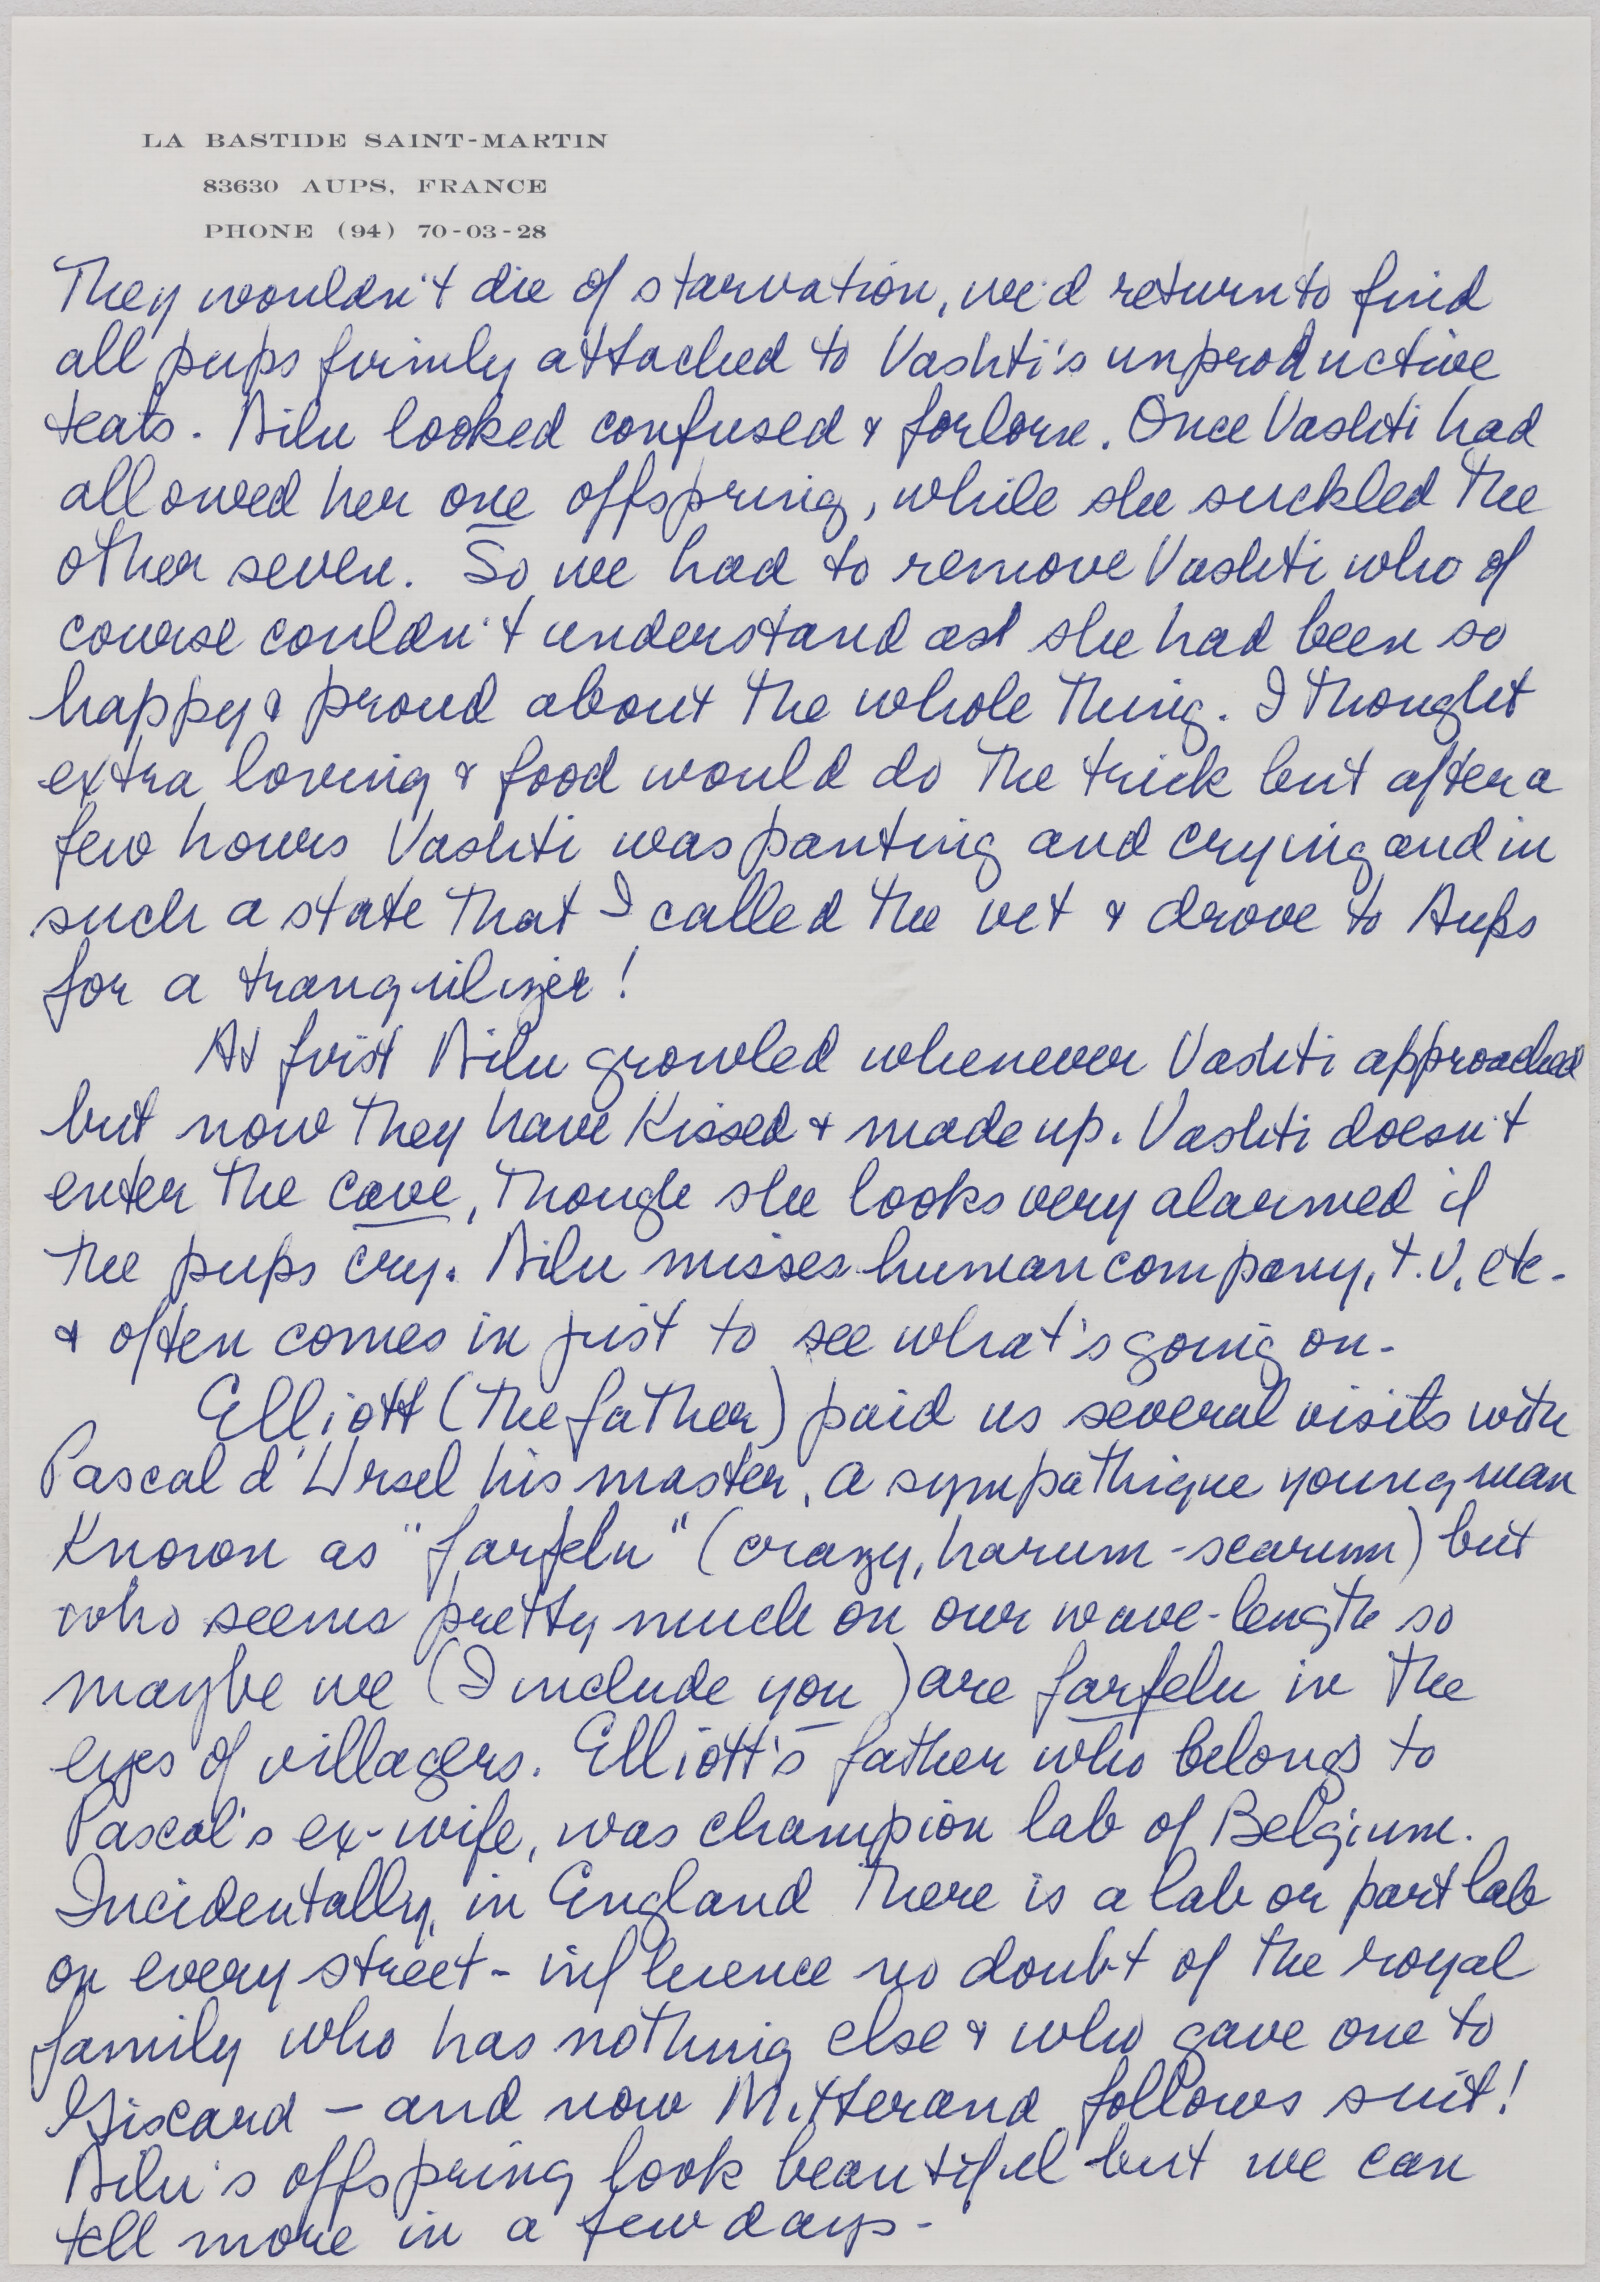 LA BASTIDE SAINT-MARTIN
83630 AUPS, FRANCE
PHONE (94) 70-03-28
They wouldn't die of starvation, we'd return to find
all pups firmly attached to Vashti's unproductive
teats. Bilu looked confused & forlorn. Once Vashti had
allowed her one offspring, while she suckled the
other seven. So we had to remove Vashti who of
course couldn't understand as she had been so
happy & proud about the whole thing. I thought
extra loving & food would do the trick but after a
few hours Vashti was panting and crying and in
such a state that I called the vet & drove to Aups
for a tranquilizer!
At first Bilu growled whenever Vashti approached
but now they have kissed & made up. Vashti doesn't
enter the cave, though she looks very alarmed if
the pups cry. Bilu misses human company, T.V. etc.
& often comes in just to see what's going on.
Elliott (the father) paid us several visits with
Pascal d'Ursel his master, a sympathique young man
known as "farfelu" (crazy, harum-scarum) but
who seems pretty much on our wave-length so
maybe we (I include you) are farfelu in the
eyes of villagers. Elliott's father who belongs to
Pascal's ex-wife, was champion lab of Belgium.
Incidentally, in England there is a lab or part lab
on every street - influence no doubt of the royal
family who has nothing else & who gave one to
Giscard — and now Mitterand follows suit!
Bilu's offspring look beautiful but we can
tell more in a few days -